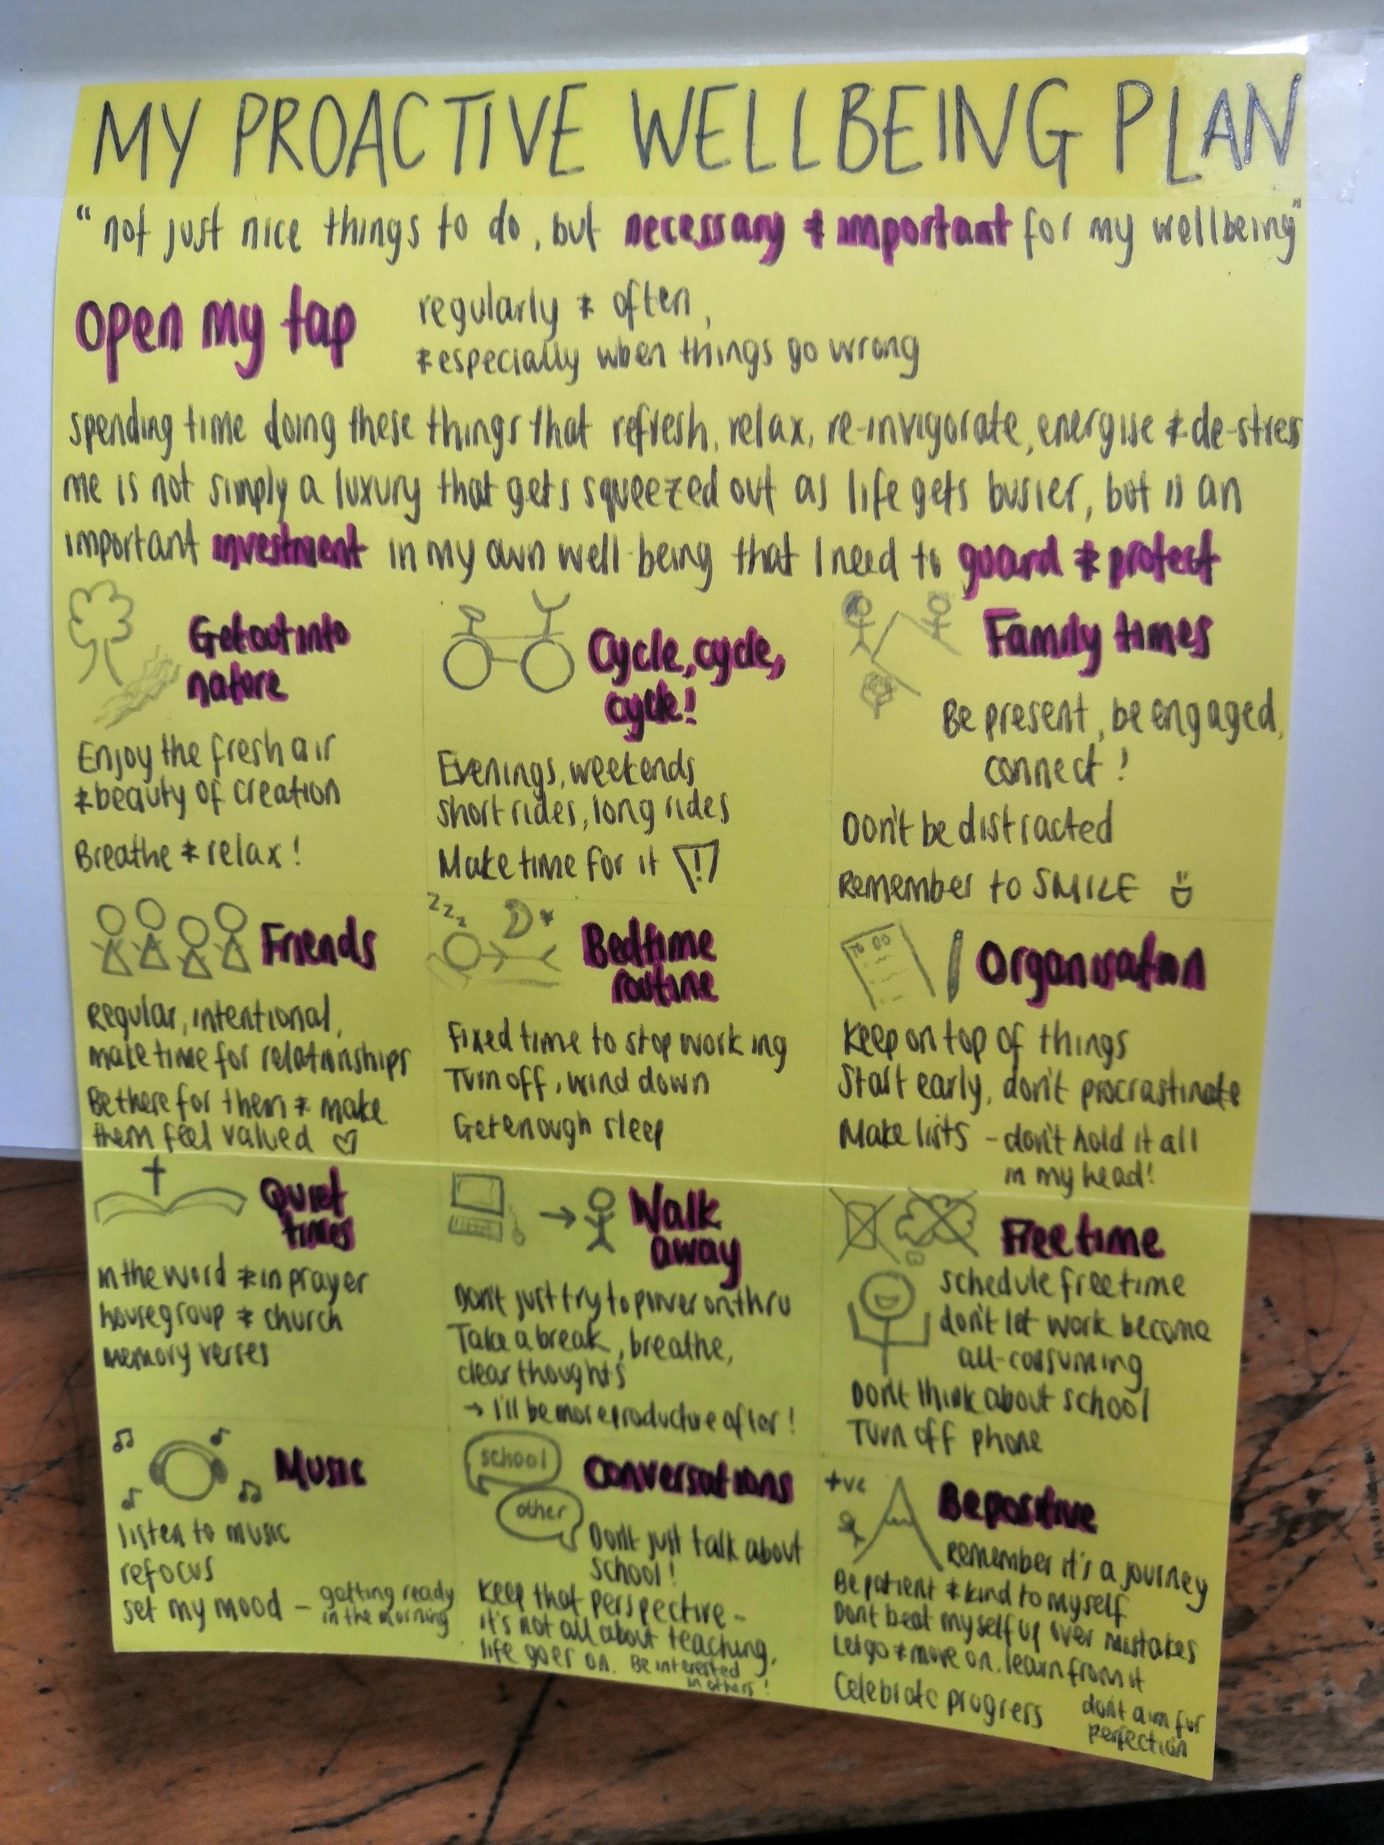 MY PROACTIVE WELLBEING PLAN
"not just nice things to do, but necessary & important for my wellbeing"
Open my tap
regularly & often,
& especially when things go wrong
spending time doing these things that refresh, relax, re-invigorate, energise & de-stress
me is not simply a luxury that gets squeezed out as life gets busier, but is an
important investment in my own well-being that I need to guard & protect
Get out into
nature
Enjoy the fresh air
& beauty of creation
Breathe & relax!
Cycle, cycle,
cycle!
Evenings, weekends
short rides, long rides
Make time for it !
Family times
Be present, be engaged,
connect!
Don't be distracted
Remember to SMILE
Friends
Regular, intentional,
make time for relationships
Be there for them & make
them feel valued
zzz
Bedtime
routine
Fixed time to stop working
Turn off, wind down
Get enough sleep
TO DO
Organisation
Keep on top of things
Start early, don't procrastinate
Make lists - don't hold it all
in my head!
Quiet
times
In the word & in prayer
housegroup & church
memory verses
Walk
away
Don't just try to power on thru
Take a break, breathe,
clear thoughts
→ I'll be more productive after!
Free time
schedule free time
don't let work become
all-consuming
Don't think about school
Turn off phone
Music
listen to music
refocus
set my mood - getting ready
in the morning
school
other
Conversations
Don't just talk about
school!
Keep that perspective -
it's not all about teaching,
life goes on. Be interested
in others!
+ve
Be positive
Remember it's a journey
Be patient & kind to myself
Dont beat myself up over mistakes
Let go & move on, learn from it
Celebrate progress
don't aim for
perfection